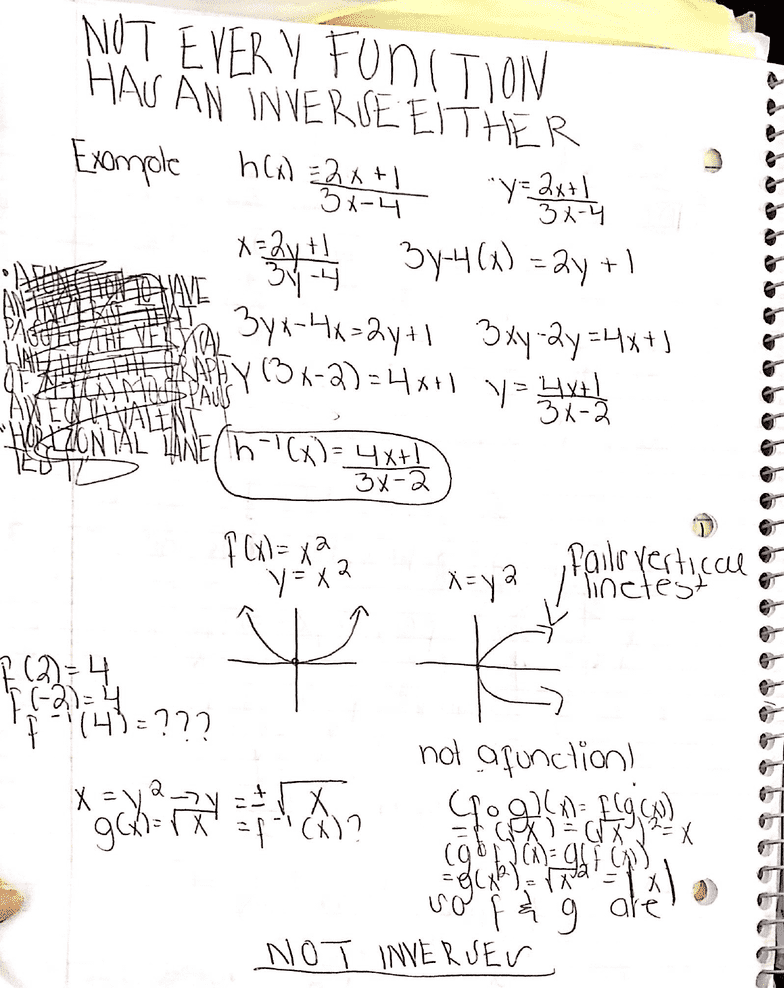 NOT EVERY FUNCTION
HAS AN INVERSE EITHER
Example h(x) = 2x+1 / 3x-4 y = 2x+1 / 3x-4
x = 2y+1 / 3y-4 3y-4(x) = 2y+1
3yx-4x=2y+1 3xy-2y=4x+1
y(3x-2)=4x+1 y = 4x+1 / 3x-2
h⁻¹(x) = 4x+1 / 3x-2
f(x)= x²
y = x²
x=y²
fails vertical
line test
f(2)=4
f(-2)=4
f⁻¹(4)=???
not a function!
x = y² → y = ±√x
g(x)=√x = f⁻¹(x)?
(f∘g)(x)= f(g(x))
=f(√x)=(√x)²=x
(g∘f)(x)=g(f(x))
=g(x²)=√x²=|x|
so f & g are
NOT INVERSES